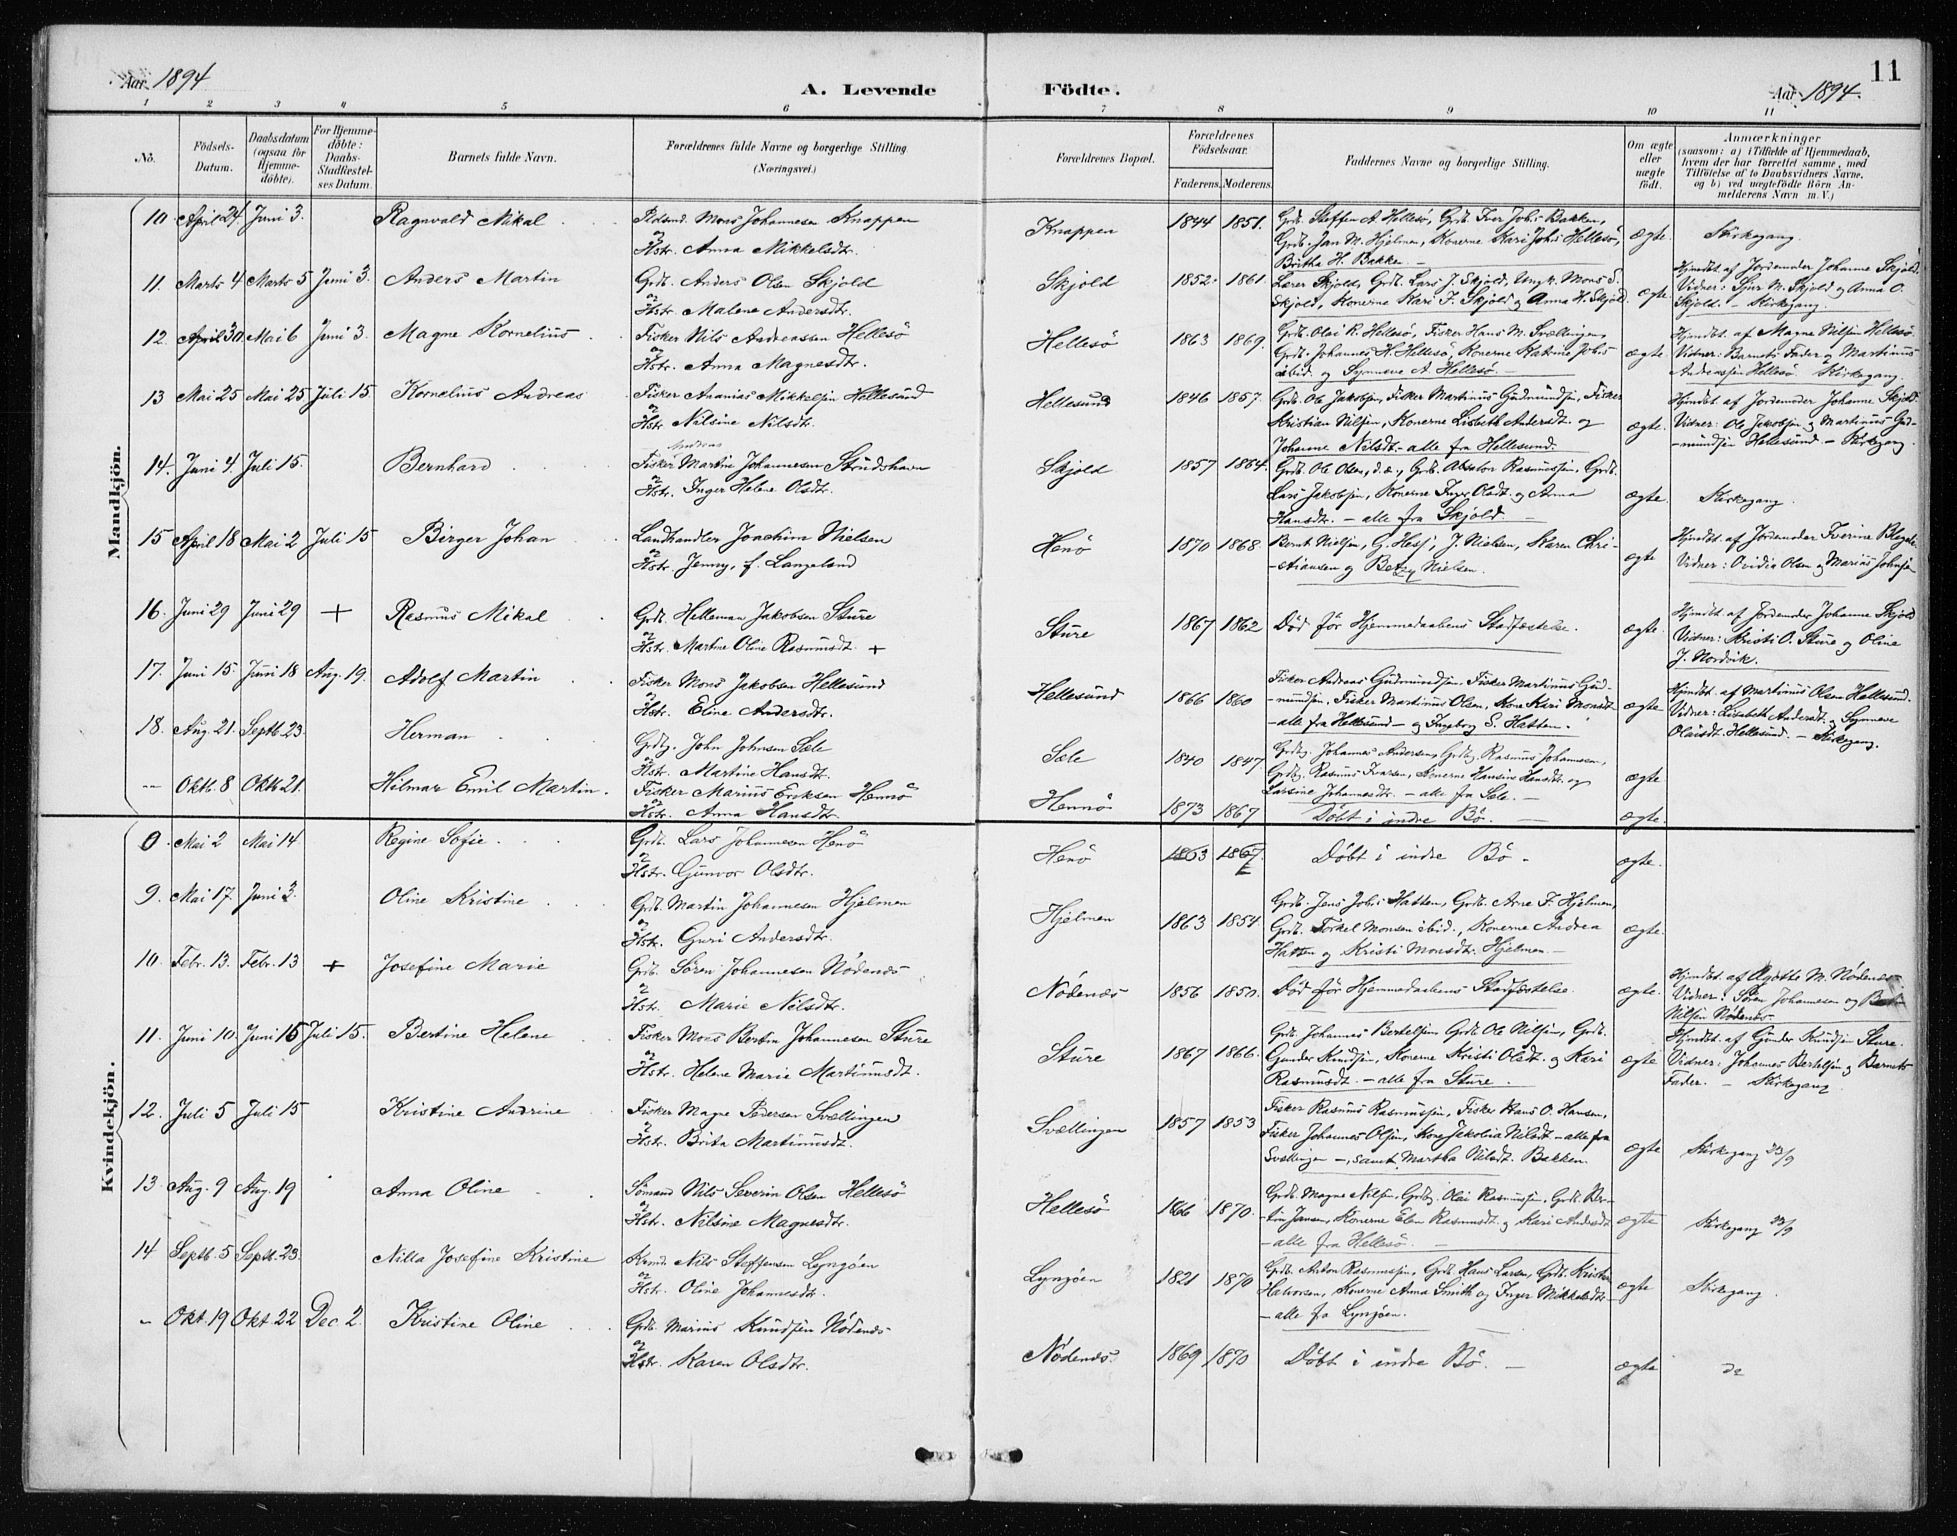 Aar 1894
A. Levende
Födte.
Aar 1894.
11
1 2 3 4 5 6 7 8 9 10 11
No.
Födsels-
Datum.
Daabsdatum
(ogsaa for
Hjemme-
döbte).
For Hjemme-
döbte:
Daabs-
Stadfæstel-
ses Datum.
Barnets fulde Navn.
Forældrenes fulde Navne og borgerlige Stilling
(Næringsvei.)
Forældrenes Bopæl.
Forældrenes
Födselsaar.
Faderens. Moderens.
Faddernes Navne og borgerlige Stilling.
Om ægte
eller
uægte
födt.
Anmærkninger
(saasom: a) i Tilfælde af Hjemmedaab,
hvem der har forrettet samme, med
Tilföielse af to Daabsvidners Navne,
og b) ved uægtefödte Börn An-
melderens Navn m. V.)
Mandkjön.
10. April 24 Juni 3. Ragnvald Mikal
Mons Johannesen Knappen
Hstr. Anna Mikkelsdtr.
Knappen 1844 1851.
Grdb. Steffen A. Hellesö, Grdb. Iver Johs Bakken,
Grdb. Jan M. Hjelmen, Konerne Kari Johs Hellesö,
Britha H. Bakke.
ægte. Kirkegang.
11. Marts 4 Marts 5 Juni 3. Anders Martin
Grdb. Anders Olsen Skjold
Hstr. Malene Andersdtr.
Skjold 1852. 1861.
Lærer Skjold, Grdb. Lars J. Skjold, Ungk. Mons S.
Skjold, Konerne Kari J. Skjold og Anna H. Skjold
ægte.
Hjmdbt. af Jordemoder Johanne Skjold.
Vidner: Sjur M. Skjold og Anna O.
Skjold. – Kirkegang.
12. April 30. Mai 6 Juni 3. Magne Kornelius
Fisker Nils Andreassen Hellesö
Hstr. Anna Magnesdtr.
Hellesö 1863 1869.
Grdb. Olai R. Hellesö, Fisker Hans M. Svællingen,
Grdb. Johannes H. Hellesö, Konerne Johs
ibid. og Synneve A. Hellesö.
ægte.
Hjmdbt. af Magne Nilsen Hellesö
Vidner: Barnets Fader og Martinus
Andreassen Hellesö. Kirkegang.
13 Mai 25 Mai 25 Juli 15. Kornelius Andreas
Fisker Ananias Mikkelsen Hellesund
Hstr. Nilsine Nilsdt.
Hellesund 1846 1857.
Grdb. Ole Jakobsen, Fisker Martinus Gudmundsen, Fisker
Kristian Nilsen, Konerne Lisbeth Andersdt. og
Johanne Nilsdt. – alle fra Hellesund.
ægte.
Hjmdbt. af Jordemoder Johanne Skjold.
Vidner: Ole Jakobsen og Martinus Gud-
-mundsen Hellesund – Kirkegang.
14. Juni 4. Juli 15. Bernhard
Fisker Martin Johannesen Strudshavn
Hstr. Inger Helene Olsdtr.
Skjold 1857 1864.
Grdb. Ole Olsen, d.æ., Grdb. Absalon Rasmussen, Grdb.
Lars Jakobsen, Konerne Inger Olsdt. og Anna
Hansdtr. – alle fra Skjold.
ægte. Kirkegang.
15 April 18 Mai 2 Juli 15 Birger Johan
Landhandler Joachim Nielsen
Hstr. Jenny, f. Langeland
Henö 1870 1868.
Bernt Nielsen, G. J. Nielsen, Karen Chri-
-stiansen og Betzy Nielsen.
ægte
Hjmdbt. af Jordemoder Iverine
Vidner: Ovidia Olsen og Marius Johnsen
16. Juni 29 Juni 29 + Rasmus Mikal
Grdb. Helleman Jakobsen Sture
Hstr. Martine Oline Rasmusdt. +
Sture 1867 1862
Död för Hjemmedaabens Stadfæstelse.
ægte.
Hjmdbt. af Jordemoder Johanne Skjold
Vidner: Kristi O. Sture og Oline
J. Nordvik.
17. Juni 15. Juni 18 Aug. 19. Adolf Martin
Fisker Mons Jakobsen Hellesund
Hstr. Eline Andersdtr.
Hellesund 1866 1860
Fisker Andreas Gudmundsen Fisker Martinus Gud-
-mundsen, Fisker Martinus Olsen, Kone Kari Monsdt
– alle fra Hellesund – og Ingeborg S. Hatten.
ægte
Hjmdbt. af Martinus Olsen Hellesund.
Vidner: Lisabeth Andersdt. og Synneve
Olaisdt. Hellesund. – Kirkegang.
18. Aug. 21. Septb. 23. Herman
Grdbg. John Johnsen Sæle
Hstr. Martine Hansdt.
Sæle 1840 1847.
Grdbg. Johannes Andersen, Grdbg. Rasmus Johannesen,
Grdbg. Rasmus Ivarsen, Konerne Hansine Hansdt. og
Larsine Johannesdtr. – alle fra Sæle.
ægte
-- Oktb. 8 Oktb. 21. Hilmar Emil Martin.
Fisker Marius Eriksen Hennö
Hstr. Anna Hansdtr.
Hennö 1873 1867
Döbt i indre Bö.
ægte.
Kvindekjön.
0. Mai 2 Mai 14. Regine Sofie
Grdb. Lars Johannesen Henö
Hstr. Gunvor Olsdtr.
Henö 1863 1867.
Döbt i indre Bö
ægte.
9. Mai 17. Juni 3. Oline Kristine
Grdb. Martin Johannesen Hjelmen
Hstr. Guri Andersdtr.
Hjelmen 1863 1854.
Grdb. Jens Johs Hatten, Grdb. Arne J. Hjelmen,
Grdb. Torkel Monsen ibid., Konerne Andrea
Hatten og Kristi Monsdt. Hjelmen.
ægte.
10. Febr. 13. Febr. 13 + Josefine Marie
Grdb. Sören Johannesen Nödenæs
Hstr. Marie Nilsdt.
Nödenæs 1856 1850.
Död för Hjemmedaabens Stadfæstelse.
ægte.
Hjmdbt. af Agathe M. Nödenæs
Vidner: Sören Johannesen og
Nilsen Nödenæs
11. Juni 10. Juni 16 Juli 15. Bertine Helene
Fisker Mons Bertin Johannesen Sture
Hstr. Helene Marie Martinusdt.
Sture 1867 1866.
Grdb. Johannes Bertelsen, Grdb. Ole Nilsen, Grdb.
Gunder Knudsen, Konerne Kristi Olsdt. og Kari
Rasmusdt. – alle fra Sture.
ægte
Hjmdbt. af Gunder Knudsen Sture.
Vidner: Johannes Bertelsen og Barnets
Fader. – Kirkegang
12. Juli 5 Juli 15 Kristine Andrine
Fisker Magne Pedersen Svællingen
Hstr. Brita Martinusdt.
Svællingen 1857 1853
Fisker Rasmus Rasmussen, Fisker Hans O. Hansen,
Fisker Johannes Olsen, Kone Jakobia Nilsdt – alle fra
Svællingen –, samt Martha Nilsdt. Bakken.
ægte Kirkegang 23/9
13. Aug. 9 Aug. 19 Anna Oline
Sömand Nils Severin Olsen Hellesö
Hstr. Nilsine Magnesdtr.
Hellesö 1866 1870.
Grdb. Magne Nilsen, Grdbg. Olai Rasmussen, Grdb. Ber-
-tin Jansen, Konerne Elen Rasmusdt. og Kari Andersdt
– alle fra Hellesö.
ægte Kirkegang 23/9
14 Septb. 5 Septb. 23. Nilla Josefine Kristine
Nils Steffensen Lyngöen
Hstr. Oline Johannesdt.
Lyngöen 1821 1870
Grdb. Anton Rasmussen, Grdb. Hans Larsen, Grdb. Kristen
Halvorsen, Konerne Anna Smith og Inger Mikkelsdt
– alle fra Lyngöen.
ægte Kirkegang.
- Okt 19 Okt 22 Dec 2 Kristine Oline
Grdb. Marius Knudsen Nödenæs
Hstr. Karen Olsdtr.
Nödenæs 1869 1870
Döbt i indre Bö.
ægte do